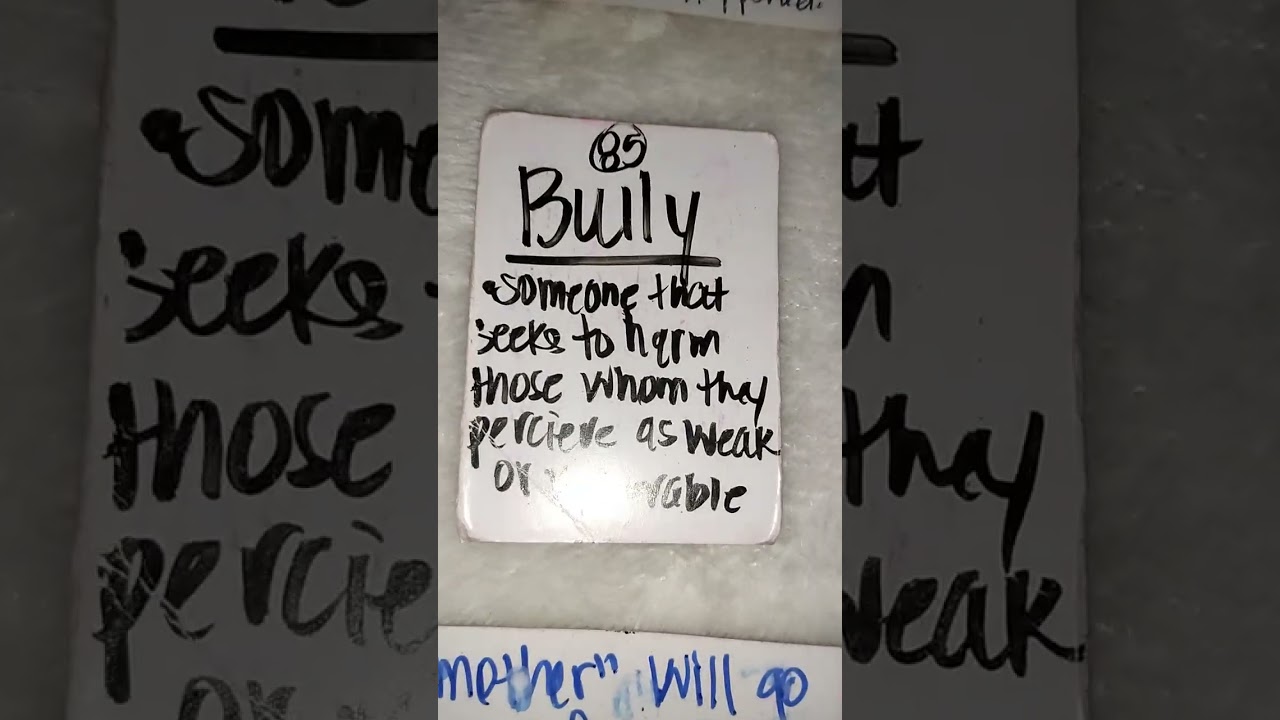 85
Bully
•someone that
seeks to harm
those whom they
percieve as weak
or
mother" will go